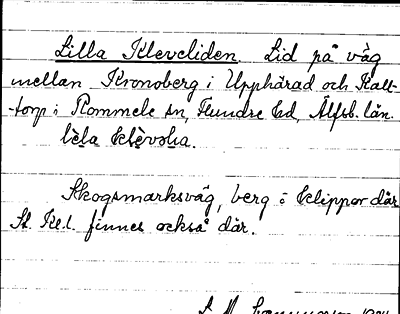 Lilla Kleveliden. Lid på väg
mellan Kronoberg i Upphärad och Kall-
-torp i Rommele sn, Flundre hd, Älfsb. län.
Skogsmarksväg, berg o klippor där
St. Kl.l. finnes också där.